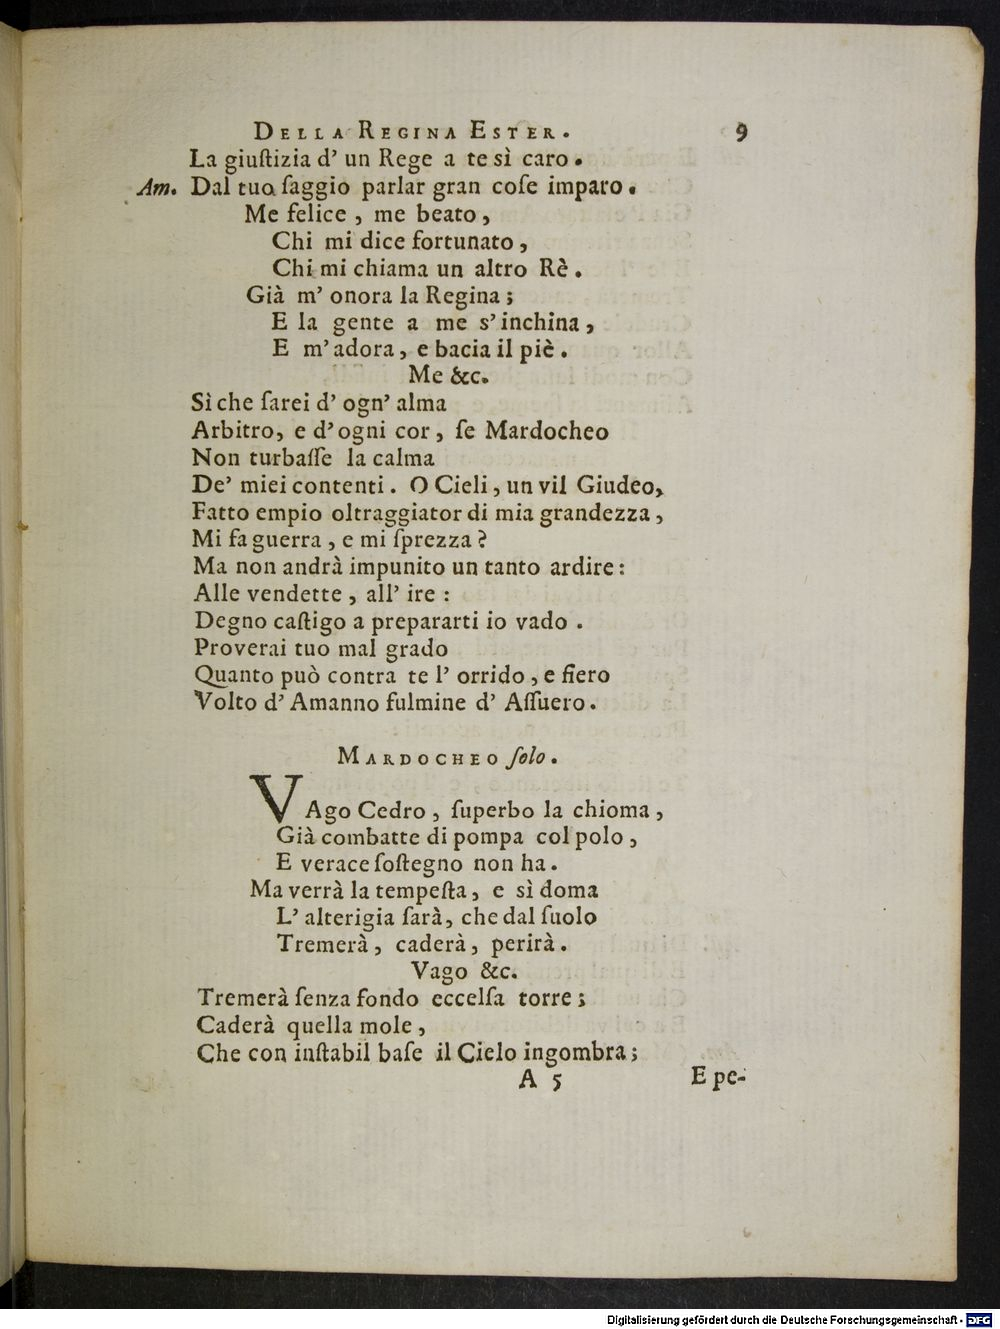 DELLA REGINA ESTER. 9
La giuſtizia d' un Rege a te sì caro.
Am. Dal tuo ſaggio parlar gran coſe imparo.
Me felice, me beato,
Chi mi dice fortunato,
Chi mi chiama un altro Rè.
Già m' onora la Regina;
E la gente a me s' inchina,
E m' adora, e bacia il piè.
Me &c.
Sì che ſarei d' ogn' alma
Arbitro, e d' ogni cor, ſe Mardocheo
Non turbaſſe la calma
De' miei contenti. O Cieli, un vil Giudeo,
Fatto empio oltraggiator di mia grandezza,
Mi fa guerra, e mi ſprezza?
Ma non andrà impunito un tanto ardire:
Alle vendette, all' ire:
Degno caſtigo a prepararti io vado.
Proverai tuo mal grado
Quanto può contra te l' orrido, e fiero
Volto d' Amanno fulmine d' Aſſuero.
MARDOCHEO ſolo.
VAgo Cedro, ſuperbo la chioma,
Già combatte di pompa col polo,
E verace ſoſtegno non ha.
Ma verrà la tempeſta, e sì doma
L' alterigia ſarà, che dal ſuolo
Tremerà, caderà, perirà.
Vago &c.
Tremerà ſenza fondo eccelſa torre;
Caderà quella mole,
Che con inſtabil baſe il Cielo ingombra;
A 5 E pe-
Digitalisierung gefördert durch die Deutsche Forschungsgemeinschaft - DFG